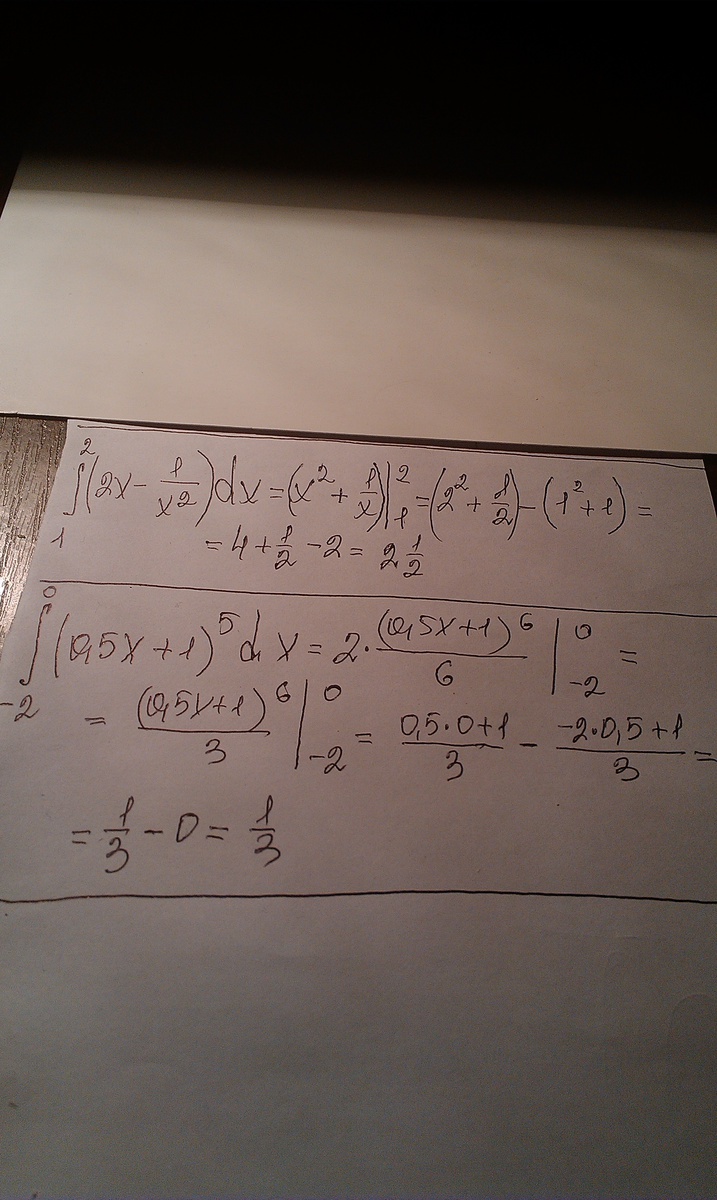 ∫₁² (2x - 1/x²) dx = (x² + 1/x) |₁² = (2² + 1/2) - (1² + 1) =
= 4 + 1/2 - 2 = 2 1/2
∫₋₂⁰ (0,5x + 1)⁵ dx = 2 · (0,5x + 1)⁶/6 |₋₂⁰ =
= (0,5x + 1)⁶/3 |₋₂⁰ = (0,5 · 0 + 1)/3 - (-2 · 0,5 + 1)/3 =
= 1/3 - 0 = 1/3